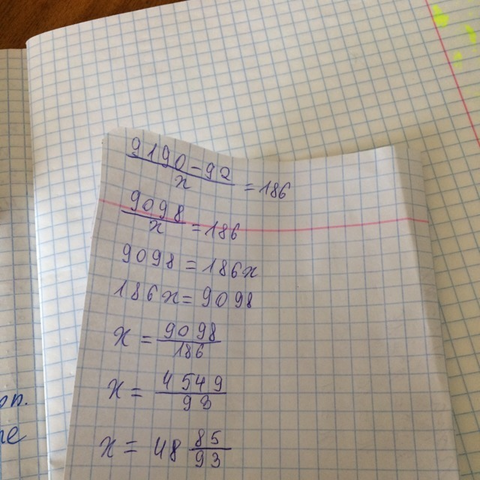 9190-92/x = 186
9098/x = 186
9098 = 186x
186x = 9098
x = 9098/186
x = 4549/93
x = 48 85/93
оп.